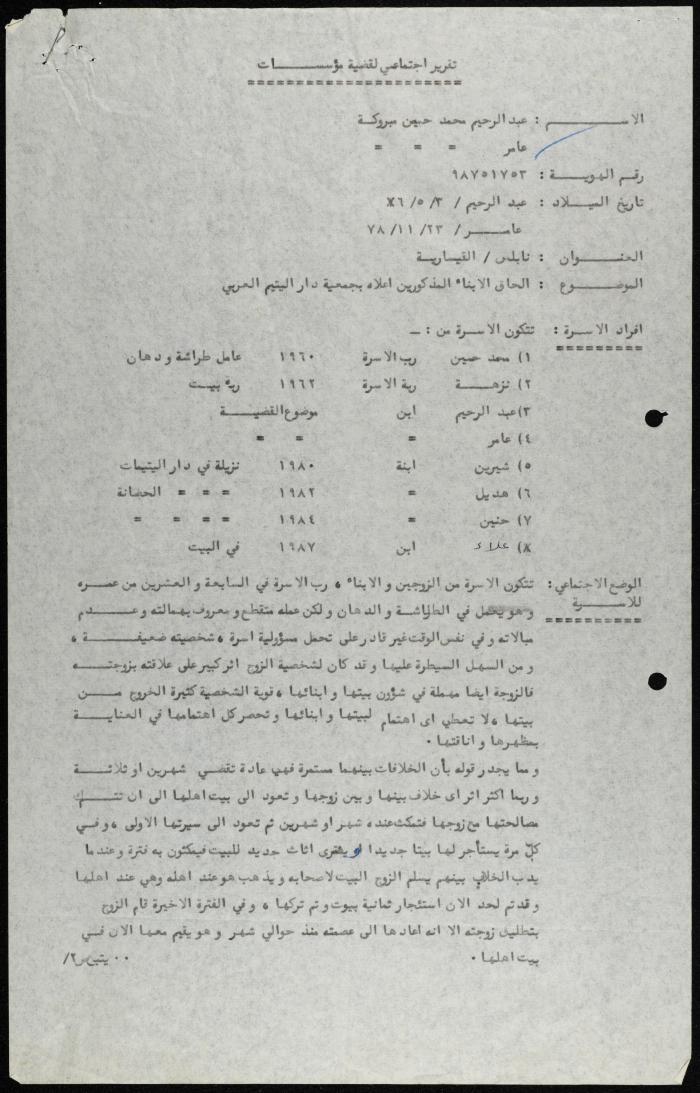 تقرير اجتماعي لقضية مؤسسات
الاسم : عبد الرحيم محمد حسين مبروكة
عامر = = =
رقم الهوية : ٩٨٧٥١٧٥٣
تاريخ الميلاد : عبد الرحيم / ٣/ ٥/
عامر / ٢٣/ ١١/ ٧٨
العنوان : نابلس / القيسارية
الموضوع : الحاق الابناء المذكورين اعلاه بجمعية دار اليتيم العربي
افراد الاسرة : تتكون الاسرة من : ــ
١) محمد حسين رب الاسرة ١٩٦٠ عامل طراشة و دهان
٢) نزهة ربة الاسرة ١٩٦٢ ربة بيت
٣) عبد الرحيم ابن موضوع القضية
٤) عامر = = =
٥) شيرين ابنة ١٩٨٠ نزيلة في دار اليتيمات
٦) هديل = ١٩٨٢ = = = الحضانة
٧) حنين = ١٩٨٤ = = = =
٨) علاء ابن ١٩٨٧ في البيت
الوضع الاجتماعي : تتكون الاسرة من الزوجين و الابناء ، رب الاسرة في السابعة و العشرين من عمره
للاسرة و هو يعمل في الطراشة و الدهان و لكن عمله متقطع و معروف بهمالته و عدم
مبالاته و في نفس الوقت غير قادر على تحمل مسؤولية اسرة ، شخصيته ضعيفة ،
و من السهل السيطرة عليها و قد كان لشخصية الزوج اثر كبير على علاقته بزوجته
فالزوجة ايضا مهملة في شؤون بيتها و ابنائها ، قوية الشخصية كثيرة الخروج من
بيتها ، لا تعطي اى اهتمام لبيتها و ابنائها و تحصر كل اهتمامها في العناية
بمظهرها و اناقتها .
و مما يجدر قوله بأن الخلافات بينهما مستمرة فهي عادة تقضي شهرين او ثلاثة
و ربما اكثر اثر اى خلاف بينها و بين زوجها و تعود الى بيت اهلها الى ان تتم
مصالحتها مع زوجها فتمكث عنده شهر او شهرين ثم تعود الى سيرتها الاولى ، و في
كل مرة يستأجر لها بيتا جديدا و يشترى اثاث جديد للبيت فيمكثون به فترة و عندما
يدب الخلاف بينهم يسلم الزوج البيت لاصحابه و يذهب هو عند اهله وهي عند اهلها
و قد تم لحد الان استئجار ثمانية بيوت و تم تركها ، و في الفترة الاخيرة قام الزوج
بتطليق زوجته الا انه اعادها الى عصمته منذ حوالي شهر و هو يقيم معها الان في
بيت اهلها .
٠٠ يتبع ص٢/